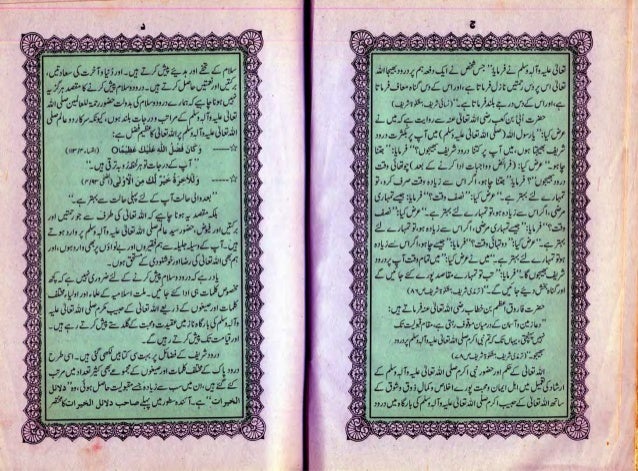 ج
تعالیٰ علیہ وآلہٖ وسلم نے فرمایا: "جس شخص نے ایک دفعہ ہم پر درود بھیجا اللہ
تعالیٰ اس پر دس رحمتیں نازل فرماتا ہے، اور اس کے دس گناہ معاف فرماتا
ہے، اور اس کے دس درجے بلند فرماتا ہے۔" (نسائی شریف، مشکوٰۃ شریف)
حضرت اُبی بن کعب رضی اللہ تعالیٰ عنہ سے روایت ہے کہ میں نے
عرض کیا: "یا رسول اللہ! (صلی اللہ تعالیٰ علیہ وسلم) میں آپ پر بکثرت درود
شریف بھیجتا ہوں، میں آپ پر کتنا درود شریف بھیجوں؟" فرمایا: "جتنا
چاہو۔" عرض کیا: (فرائض و واجبات ادا کرنے کے بعد) چوتھائی وقت
درود بھیجوں؟" فرمایا: "جتنا چاہو، اگر اس سے زیادہ وقت صرف کرو، تو
بہتر ہے۔" عرض کیا: "نصف وقت؟" فرمایا: "جیسے تمہاری
مرضی، اگر اس سے زیادہ ہو تو تمہارے لئے بہتر ہے۔" عرض کیا:
"دو تہائی وقت؟" فرمایا: "جیسے چاہو، اگر اس سے زیادہ
ہو تو تمہارے لئے بہتر ہے۔" عرض کیا: "میں تمام وقت آپ پر درود
شریف بھیجوں گا۔" فرمایا: "تب تو تمہارے مقاصد پورے کئے جائیں گے
اور گناہ بخش دیئے جائیں گے۔" (ترمذی شریف، مشکوٰۃ شریف، ص ۸۶)
حضرت فاروق اعظم بن خطاب رضی اللہ تعالیٰ عنہ فرماتے ہیں:
"دعا زمین و آسمان کے درمیان موقوف رہتی ہے، مقام قبولیت تک
نہیں پہنچتی، یہاں تک کہ تم نبی اکرم صلی اللہ تعالیٰ علیہ وآلہٖ وسلم پر درود
بھیجو۔" (ترمذی شریف، مشکوٰۃ شریف، ص ۸۷)
اللہ تعالیٰ کے حکم اور حضور نبی اکرم صلی اللہ تعالیٰ علیہ وآلہٖ وسلم کے
ارشاد کی تعمیل میں اہل ایمان و محبت پورے اخلاص و کمال ذوق و شوق کے
ساتھ اللہ تعالیٰ کے حبیب اکرم صلی اللہ تعالیٰ علیہ وآلہٖ وسلم کی بارگاہ میں درود
د
سلام کے تحفے اور ہدیئے پیش کرتے ہیں۔ اور دنیا و آخرت کی سعادتیں،
برکتیں اور نعمتیں حاصل کرتے ہیں۔ درود و سلام پیش کرنے کا مقصد ہرگز یہ
نہیں ہونا چاہیے کہ ہمارے درود و سلام کی بدولت حضور رحمۃ للعالمین صلی اللہ
تعالیٰ علیہ وآلہٖ وسلم کے مراتب و درجات بلند ہوں، کیونکہ سرکار دو عالم صلی
اللہ تعالیٰ علیہ وآلہٖ وسلم پر اللہ تعالیٰ کا عظیم فضل ہے:
☆---- وَكَانَ فَضْلُ اللّٰهِ عَلَيْكَ عَظِيْمًا (النساء ۴/۱۱۳)
"آپ کے درجات تو ہر لحظہ رو بہ ترقی ہیں۔"
☆---- وَلَلْاٰخِرَةُ خَيْرٌ لَّكَ مِنَ الْاُوْلٰى (الضحیٰ ۹۳/۴)
"بعد والی حالت آپ کے لئے پہلی حالت سے بہتر ہے۔"
بلکہ مقصد یہ ہونا چاہیے کہ اللہ تعالیٰ کی طرف سے جو رحمتیں اور
برکتیں اور فیوض، حضور سید عالم صلی اللہ تعالیٰ علیہ وآلہٖ وسلم پر وارد ہوتے
ہیں۔ آپ کے وسیلہ جلیلہ سے ہم فقیروں اور بے نواؤں پر بھی وارد ہوں، اور
ہم بھی اللہ تعالیٰ کی رضا اور خوشنودی کے مستحق ہوں۔
یاد رہے کہ درود و سلام پیش کرنے کے لئے ضروری نہیں ہے کہ کچھ
مخصوص کلمات ہی ادا کئے جائیں۔ ملت اسلامیہ کے علماء اور اولیاء مختلف
کلمات اور صیغوں کے ذریعے اللہ تعالیٰ کے حبیب مکرم صلی اللہ تعالیٰ علیہ
وآلہٖ وسلم کی بارگاہ ناز میں عقیدت و محبت کے گلدستے پیش کرتے رہے ہیں۔
اور قیامت تک پیش کرتے رہیں گے۔
درود شریف کے فضائل پر بہت سی کتابیں لکھی گئی ہیں۔ اسی طرح
درود پاک کے مختلف کلمات اور صیغوں کے مجموعے بھی کثیر تعداد میں مرتب
کئے گئے ہیں، ان میں سب سے زیادہ جسے مقبولیت حاصل ہوئی، وہ "دلائل
الخیرات" ہے۔ آئندہ سطور میں پہلے صاحب دلائل الخیرات کا مختصر